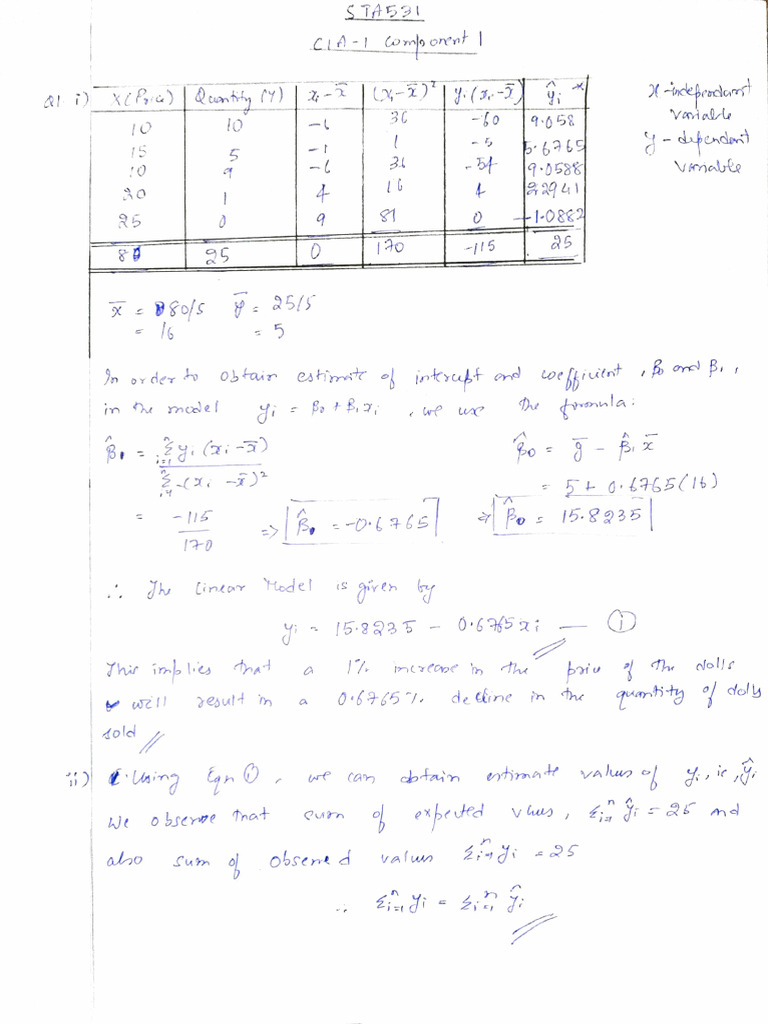 STA531
CIA-1 Component 1
Q1 i) X(Price) Quantity (Y) xi - x̄ (xi - x̄)² yi(xi - x̄) ŷi *
10 10 -6 36 -60 9.058
15 5 -1 1 -5 5.6765
10 9 -6 36 -54 9.0588
20 1 4 16 4 2.2941
25 0 9 81 0 -1.0882
80 25 0 170 -115 25
x - independent
variable
y - dependent
variable
x̄ = 80/5 ȳ = 25/5
= 16 = 5
In order to obtain estimate of intercept and coefficient, β0 and β1,
in the model yi = β0 + β1xi, we use the formula:
β̂1 = Σⁿi=1 yi (xi - x̄) / Σⁿi=1 (xi - x̄)² β̂0 = ȳ - β̂1 x̄
= 5 + 0.6765(16)
= -115/170 => β̂1 = -0.6765 => β̂0 = 15.8235
∴ The Linear Model is given by
yi = 15.8235 - 0.6765xi — (i)
This implies that a 1% increase in the price of the dolls
will result in a 0.6765% decline in the quantity of dolls
sold
ii) Using Eqn (i), we can obtain estimate values of yi, ie, ŷi
We observe that sum of expected values, Σⁿi=1 ŷi = 25 and
also sum of observed values Σⁿi=1 yi = 25
∴ Σⁿi=1 yi = Σⁿi=1 ŷi